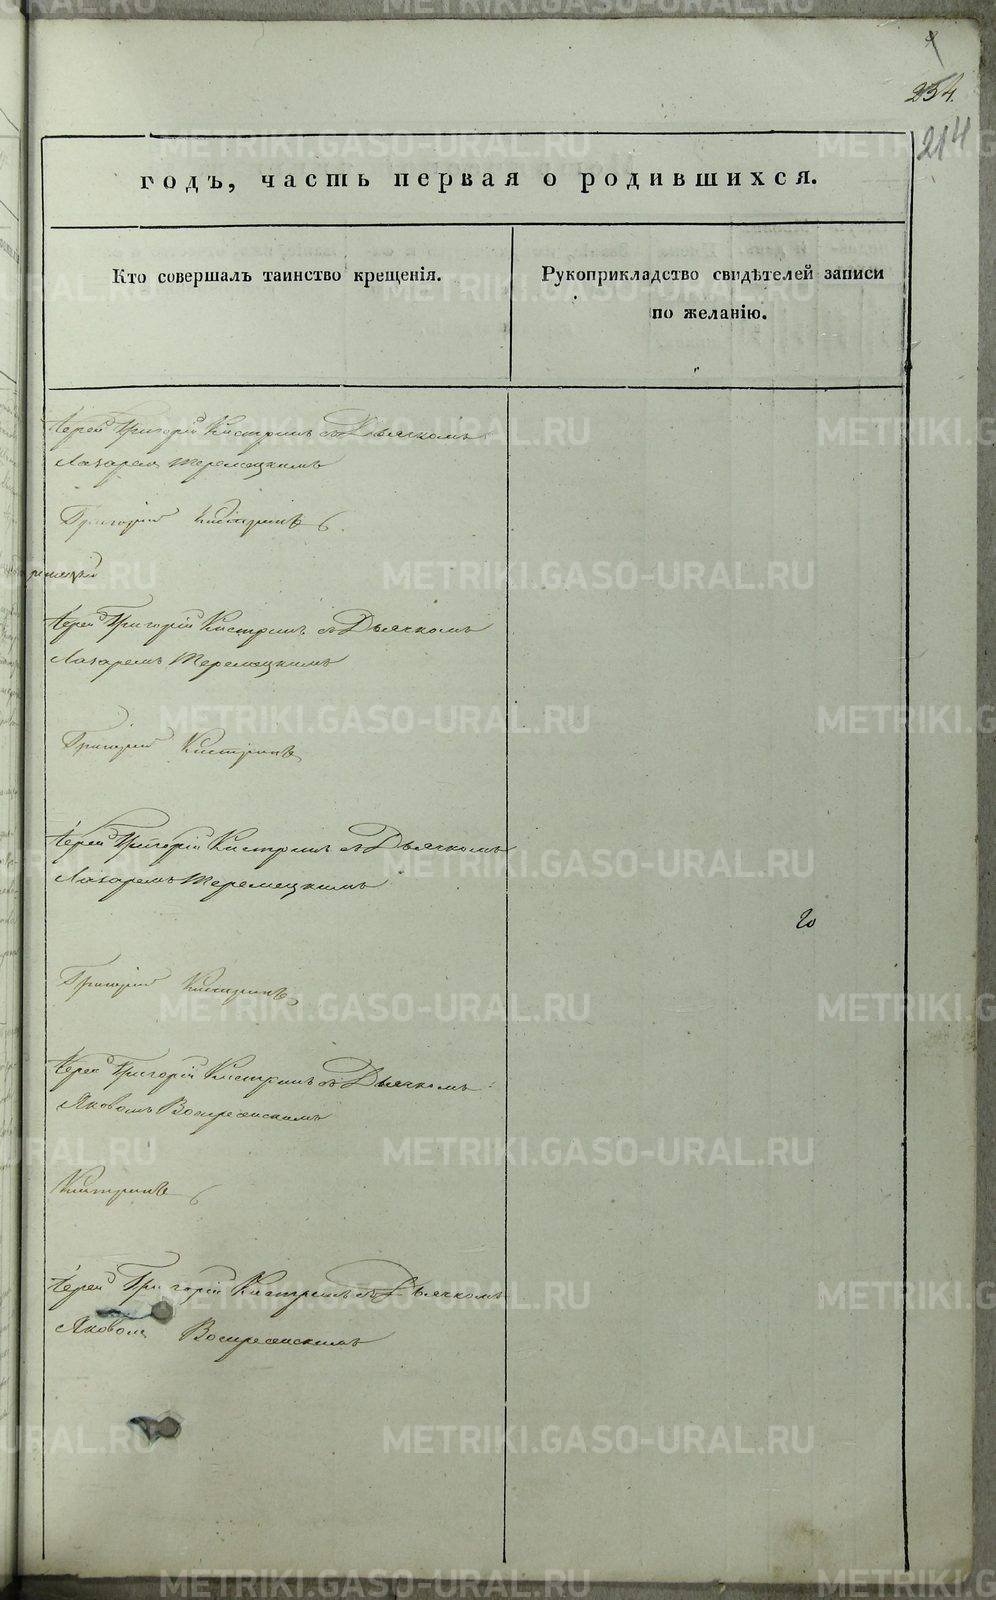 254.
214
годъ, часть первая о родившихся.
Кто совершалъ таинство крещенія.
Рукоприкладство свидѣтелей записи
по желанію.
Іерей Григорій Кистринъ съ Дьячкомъ
Лазаремъ Теремецкимъ
Григорій Кистринъ
Іерей Григорій Кистринъ съ Дьячкомъ
Лазаремъ Теремецкимъ
Григорій Кистринъ
Іерей Григорій Кистринъ съ Дьячкомъ
Лазаремъ Теремецкимъ
Григорій Кистринъ
Іерей Григорій Кистринъ съ Дьячкомъ
Яковомъ Воскресенскимъ
Кистринъ
Іерей Григорій Кистринъ съ Дьячкомъ
Яковомъ Воскресенскимъ
METRIKI.GASO-URAL.RU